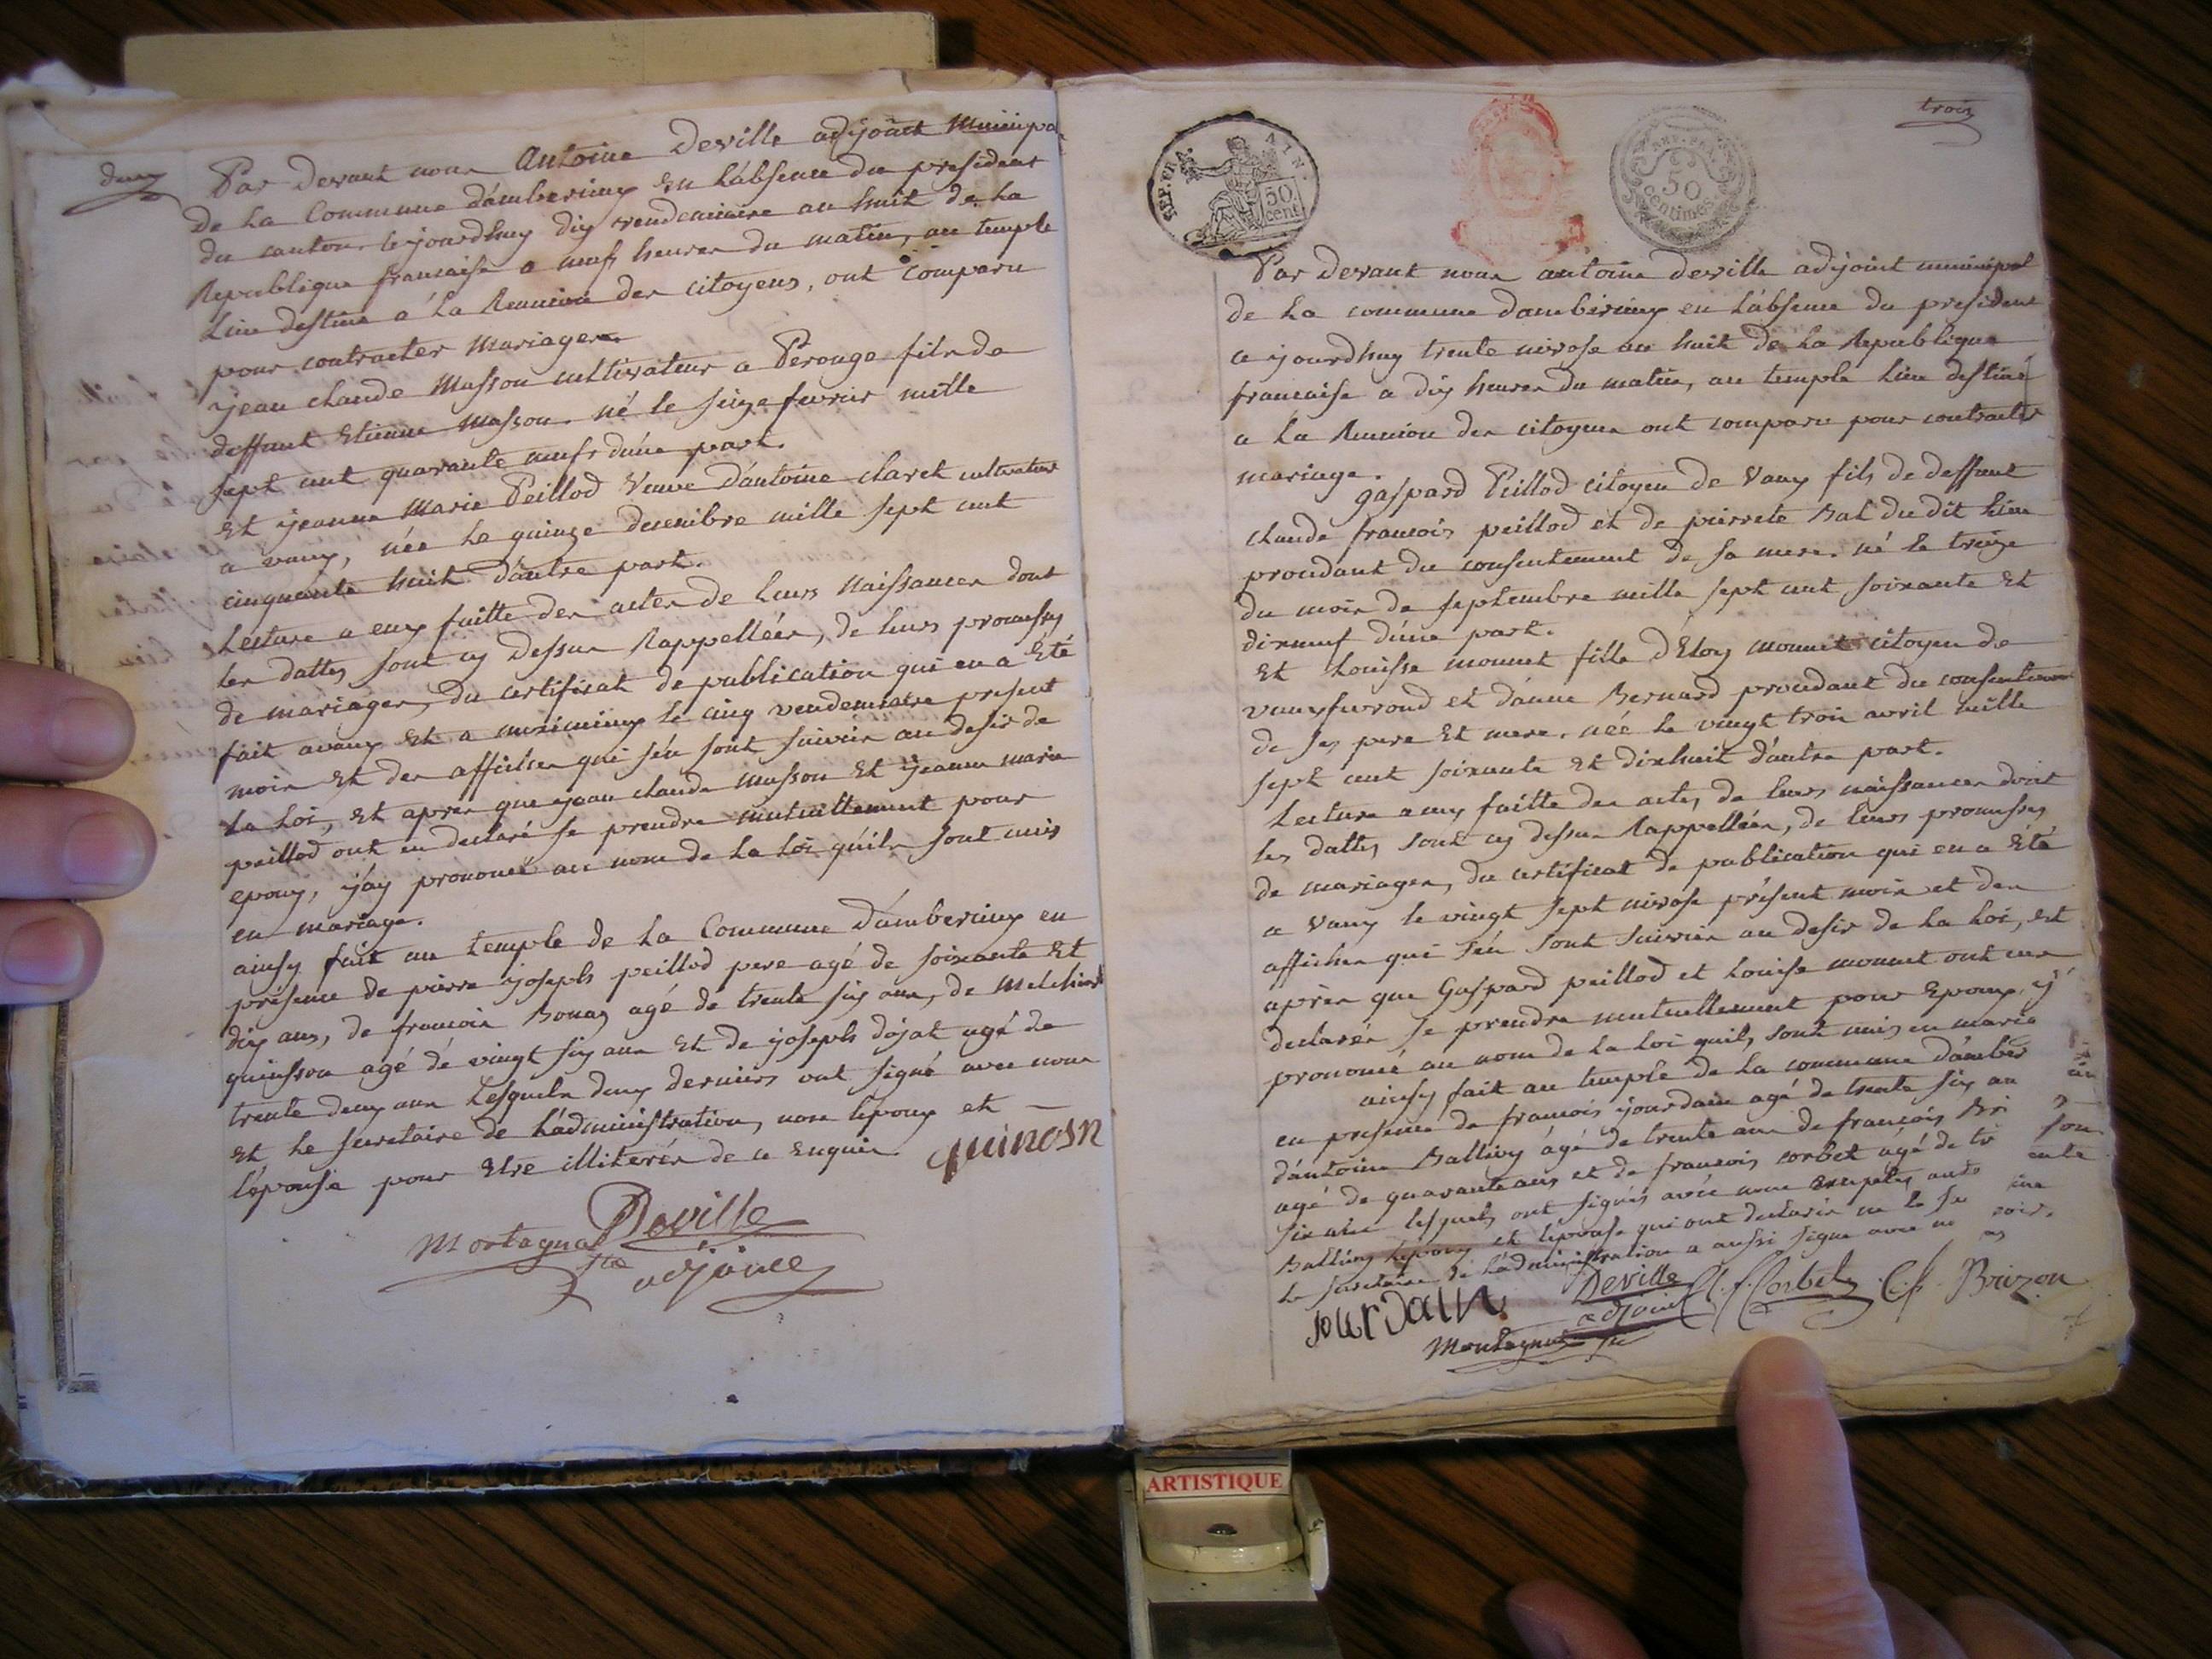 deux
Par devant nous Antoine Deville adjoint Municipa
de La Commune d'amberieux en L'absence du president
du canton, cejourdhuy dix vendemiaire an huit de La
Republique francaise a neuf heures du matin, au temple
Lieu destiné á La Reunion des citoyens, ont comparu
pour contracter Mariages.
jean claude Masson cultivateur a Perouge fils de
deffunt Etienne Masson. né le seize fevrier mille
sept cent quarante neuf d'úne part.
Et jeanne Marie Peillod Veuve d'antoine claret cultivateur
a vaux, née le quinze decembre mille sept cent
cinquante huit d'autre part.
Lecture a eux faitte des actes de leurs Naissances dont
les dattes sont cy dessus Rappellées, de leurs promesses
de mariages, du certificat de publication qui en a Eté
fait a vaux Et a meximieux le cinq vendemiaire present
mois Et des affiches qui s'én sont suivies au desir de
La Loi, Et apres que jean claude Masson Et jeanne marie
peillod ont eu declaré se prendre mutuellement pour
epoux, j'áy prononcé au nom de La Loi qúils sont unis
en mariage.
ainsy fait au temple de La Commune D'amberieux en
présence de pierre joseph peillod pere agé de soixante Et
dix ans, de francois Bonaz agé de trente six ans, de Melchior
quinson agé de vingt six ans Et de joseph dojat agé de
trente deux ans Lesquels deux derniers ont signé avec nous
Et Le secretaire de L'administration, non Lepoux et
L'épouse pour Etre illiterés de ce Enquis.
quinosn
Montagnat Deville
Sre adjoinct
trois
REP. FRA. AIN.
50 cent.
REP. FRA.
50
centimes
Par devant nous antoine deville adjoint municipal
de La commune damberieux en L'absence du president
ce jourdhuy trente nivose an huit de La Republique
francaise a dix heures du matin, au temple Lieu destiné
a La Reunion des citoyens ont comparu pour contracter
mariage.
gaspard Peillod citoyen de Vaux fils de deffunt
claude francois peillod et de pierrete Bal du dit Lieu
procedant du consentement de sa mere. né le treize
du mois de septembre mille sept cent soixante Et
dixneuf d'úne part.
Et Louisse monnet fille d'Eloy monnet citoyen de
vauxfevroud et d'ánne Bernard procedant du consentement
de ses pere Et mere. née le vingt trois avril mille
sept cent soixante Et dixhuit d'autre part.
Lecture a eux faitte des actes de leurs naissances dont
les dattes sont cy dessus Rappellées, de leurs promesses
de mariages, du certificat de publication qui en a Été
a Vaux le vingt sept nivose présent mois et des
affiches qui s'én sont suivies au desir de La Loi, et
aprés que Gaspard peillod et Louise monnet ont eus
declarés se prendre mutuellement pour Epoux, j'
prononcé au nom de La Loi quils sont unis en maria
ainsy fait au temple de La commune d'ámber
en presence de francois jourdain agé de trente six an
d'ántoine Ballivy ágé de trente ans de francois Bri
agé de quarante ans et de francois corbet agé de tr
six ans lesquels ont signés avéc nous Exeptés anto
Ballivy Lepoux et Lepouse qui ont declarés ne le s
Le secretaire de L'administration a aussi signé avec n
jourdain Deville adjoint C. f. Corbet C. f. Brizon
Montagnat Sre
ARTISTIQUE